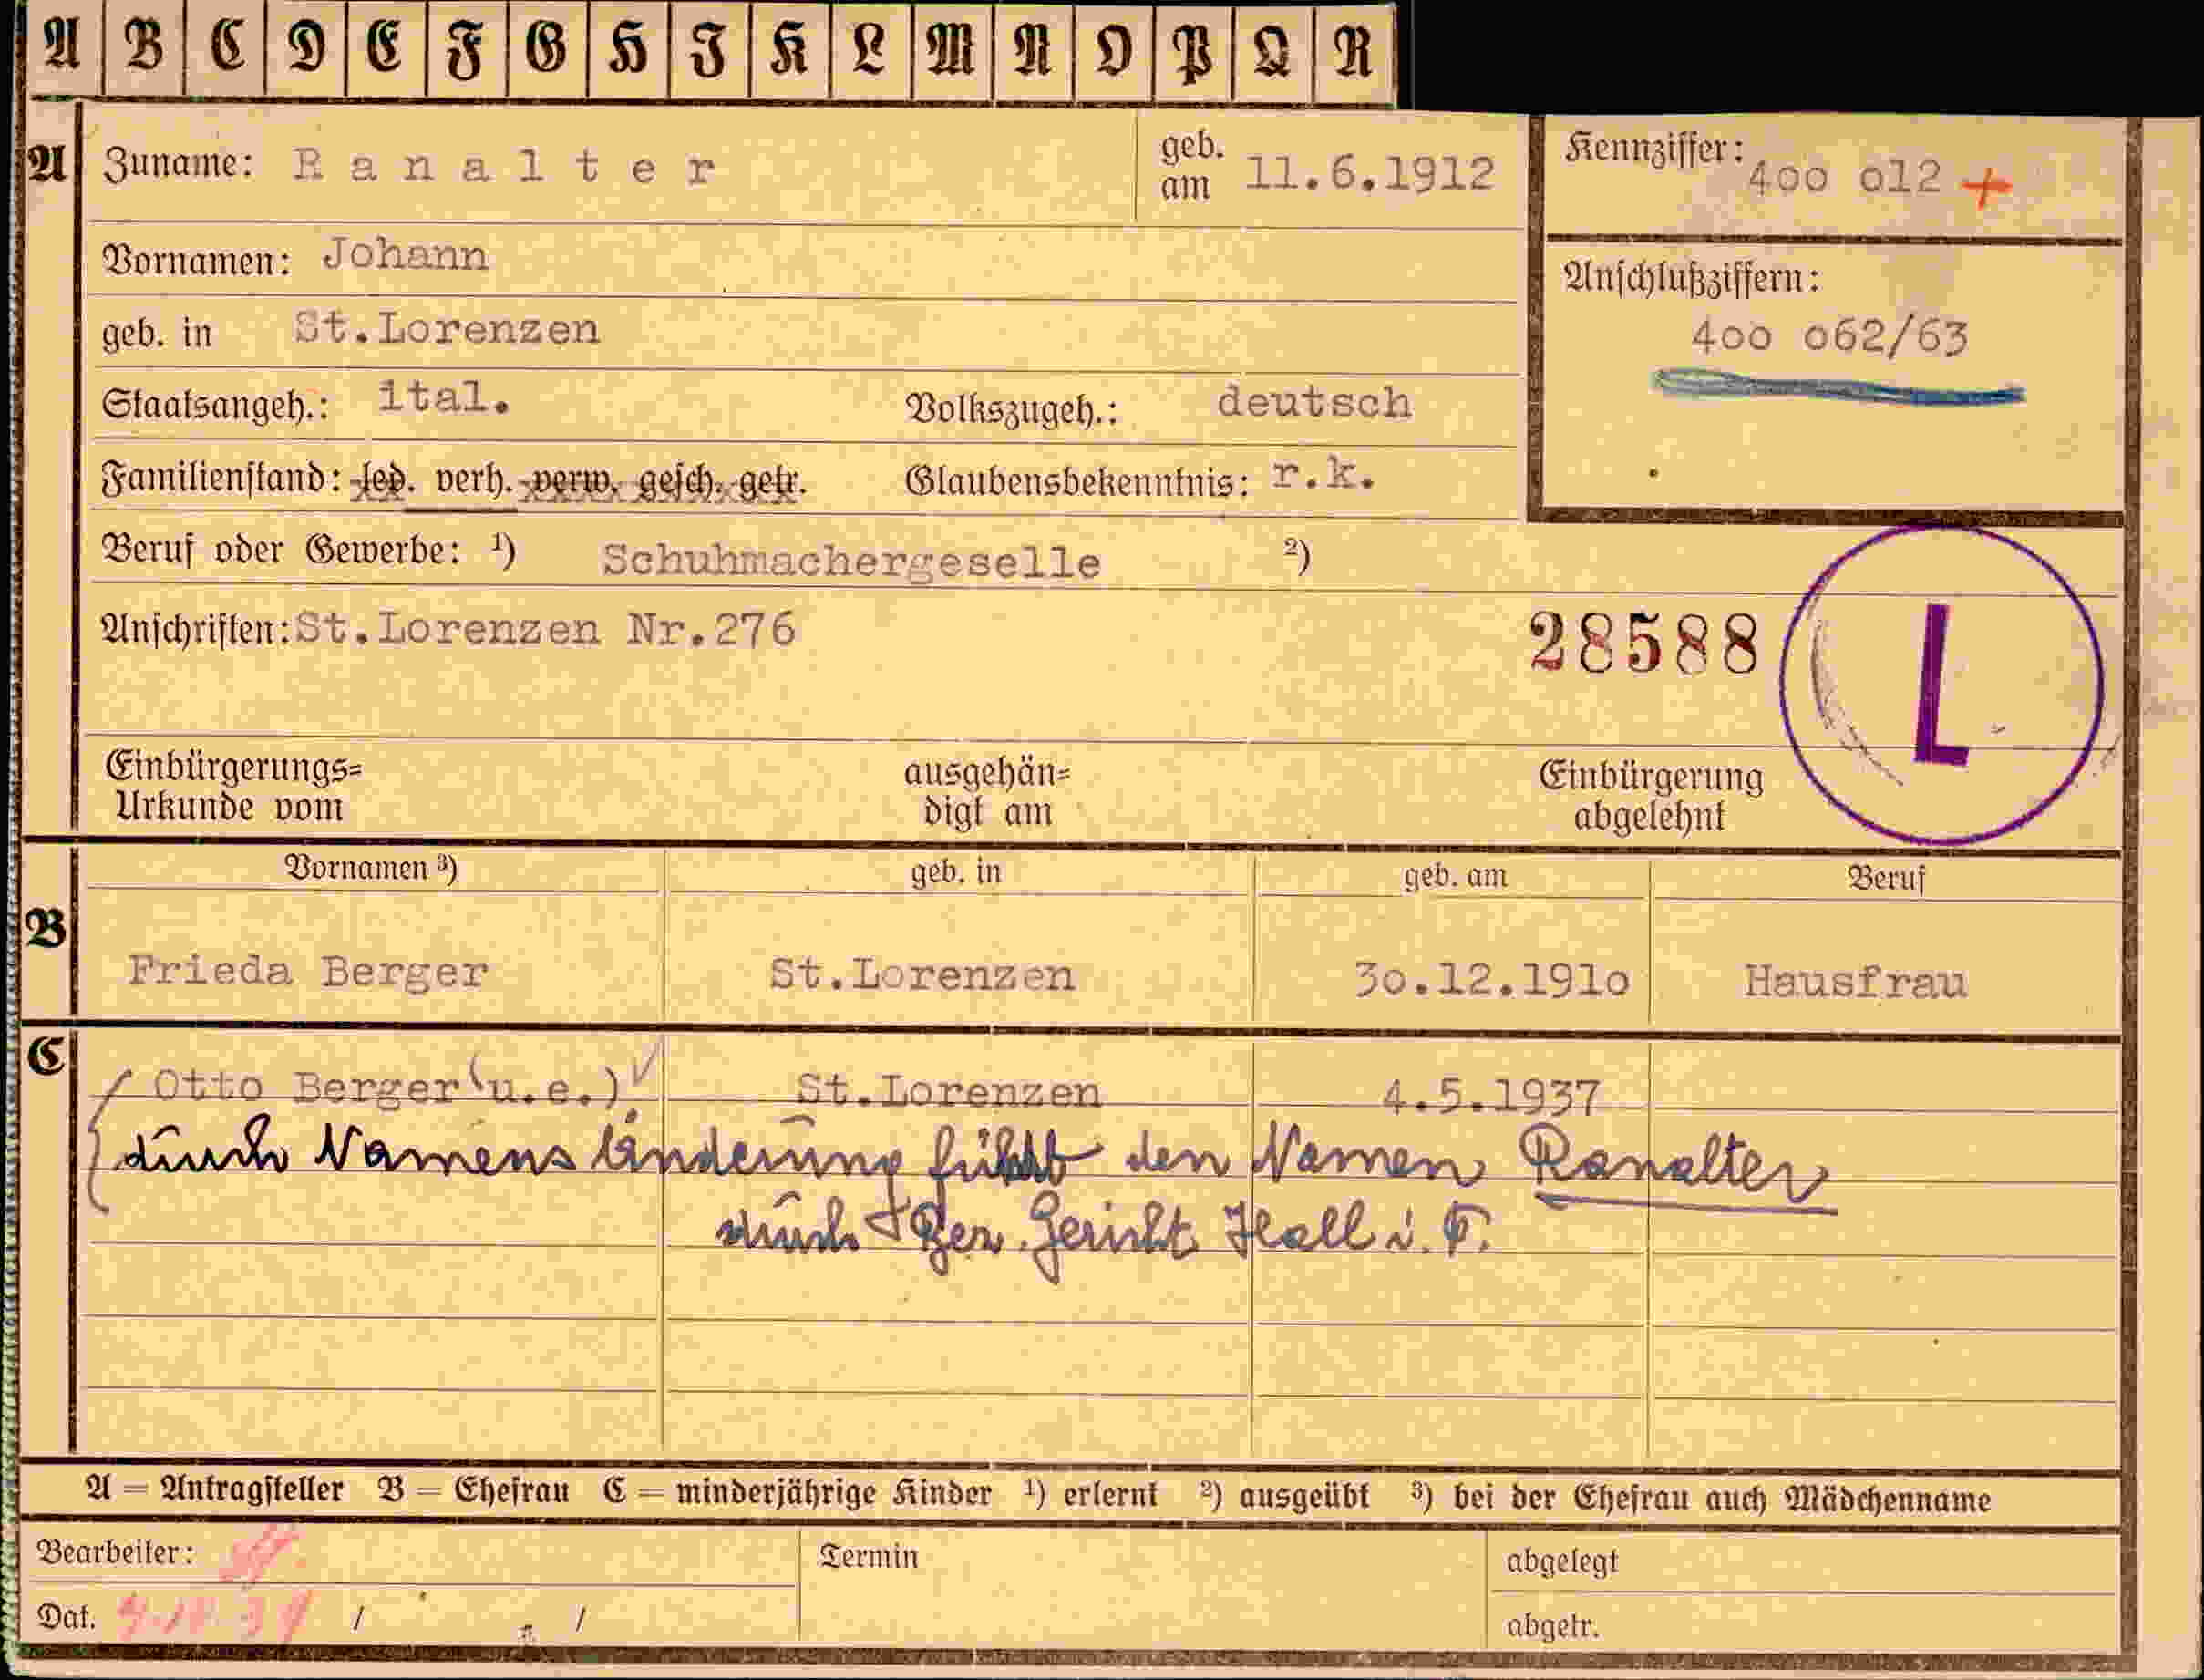 A B C D E F G H J K L M N O P Q R
A Zuname: Ranalter geb. am 11.6.1912 Kennziffer: 400 012 +
Vornamen: Johann
Anschlußziffern:
geb. in St.Lorenzen 400 062/63
Staatsangeh.: ital. Volkszugeh.: deutsch
Familienstand: led. verh. verw. gesch. getr. Glaubensbekenntnis: r.k.
Beruf oder Gewerbe: ¹) Schuhmachergeselle ²)
Anschriften: St.Lorenzen Nr.276 28588 L
Einbürgerungs= ausgehän= Einbürgerung
Urkunde vom digt am abgelehnt
Vornamen ³) geb. in geb. am Beruf
B
Frieda Berger St.Lorenzen 30.12.1910 Hausfrau
C
Otto Berger (u.e.) St.Lorenzen 4.5.1937
durch Namensänderung führt den Namen Ranalter
durch Bez. Gericht Hall i. T.
A = Antragsteller B = Ehefrau C = minderjährige Kinder ¹) erlernt ²) ausgeübt ³) bei der Ehefrau auch Mädchenname
Bearbeiter: Termin abgelegt
Dat. / / abgetr.